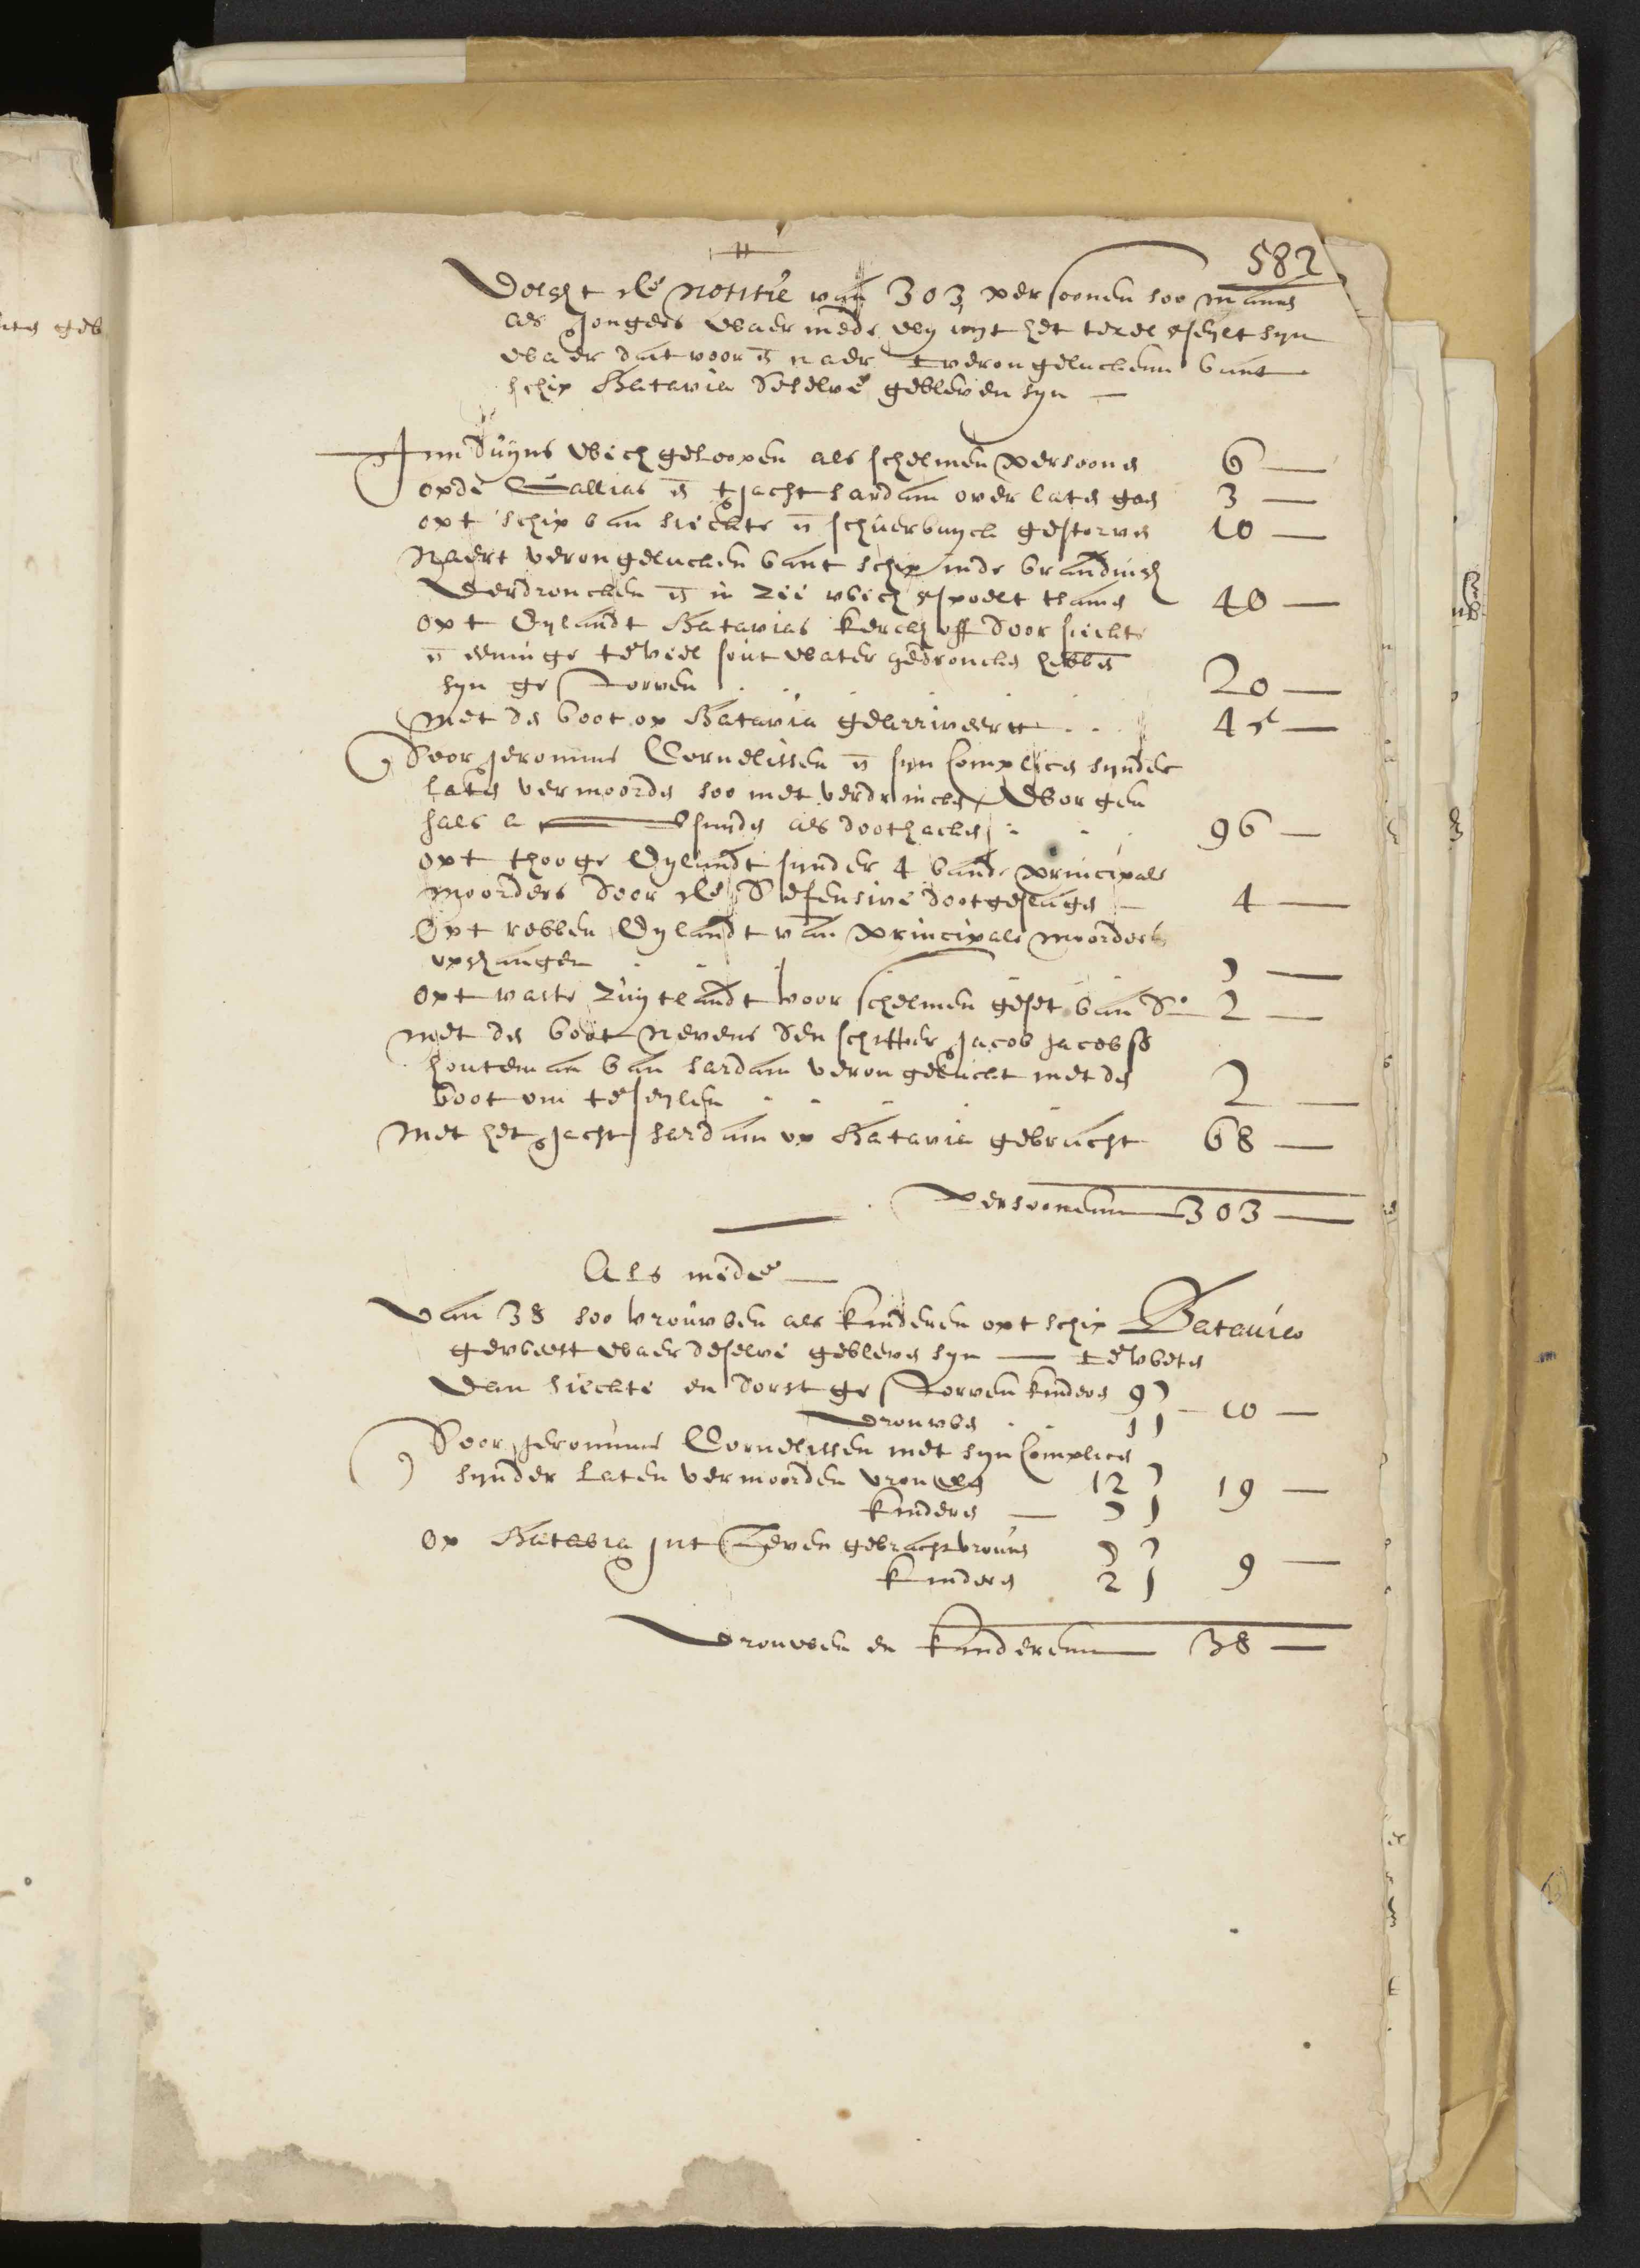 582
Volcht de notitie van 303 persoonen soo mans
als Jongers waer mede wy uyt het texel geseylt syn
waer dat voor en naer tverongelucken vant
schip Batavia deselve gebleven syn —
Inn duyns wech geloopen als schelmen persoons 6 —
opde Gallias en tJacht sardam over laten gaen 3 —
opt schip van siecte en schuerbuyck gestorven 10 —
Naert verongelucken vant schip inde brandingh
verdroncken en in Zee wech gespoelt
40 —
opt Eylandt Batavias kerckhoff door siecte
en eeninge te veel sout water gedroncken hebben
syn gestorven . . . . 20 —
Met de boot op Batavia gearriveert . . . 45 —
Door Jeronimus Cornelissen en syn Complicen synder
laten vermoorden soo met verdrincken, Worgen
hals als doothacken 96 —
opt hooge Eylandt synder 4 vande principale
moorders door de defensive dootgeslagen — 4 —
Opt robben Eylandt van principale moorders
opgehangen . . . 7 —
opt vaste Zuytlandt voor schelmen geset van do 2 —
met de boot nevens den schipper Jacob Jacobss
houteman van sardam verongeluckt met de
boot om te seylen . . . . 2 —
Met het Jacht sardam op Batavia gebracht 68 —
Persoonenn 303 —
Als mede —
Van 38 soo vrouwen als kinderen opt schip Batavia
geweest waer deselve gebleven syn — te weten
Van siecte en dorst gestorven kinders 9 } — 10 —
Vrouwen . . 1 }
Door Jeronimus Cornelissen met syn Complices
synder laten vermoorden vrouwen 12 } 19 —
kinders — 7 }
Op Batavia int Leven gebracht vrouws 7 } 9 —
kinders 2 }
Vrouwen en kinderenn 38 —